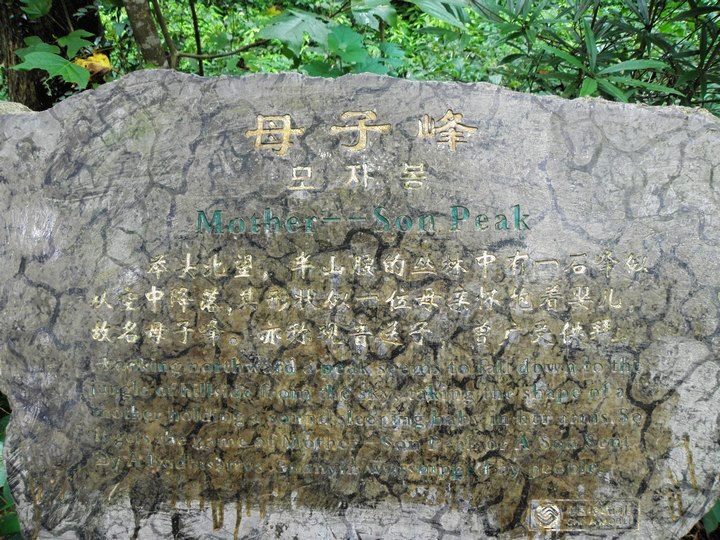 母子峰
모자봉
Mother--Son Peak
举头北望，半山腰的丛林中有一石峰似
从空中降落，其形状似一位母亲怀抱着婴儿，
故名母子峰。亦称观音送子，曾广受供拜。
Looking northward a peak seems to fall down to the
jungle of hillside from the sky, taking the shape of a
mother holding a sleeping baby in her arms. So
the name of Mother--Son Peak. A Son Sent
by people.